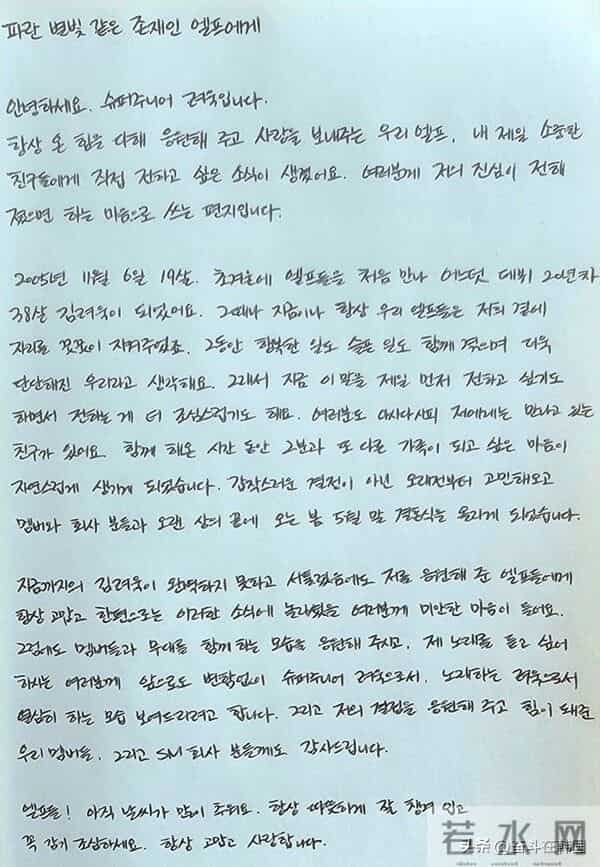 파란 별빛 같은 존재인 엘프에게
안녕하세요. 슈퍼주니어 려욱입니다.
항상 온 힘을 다해 응원해 주고 사랑을 보내주는 우리 엘프. 내 제일 소중한
친구들에게 직접 전하고 싶은 소식이 생겼어요. 여러분께 저의 진심이 전해
졌으면 하는 마음으로 쓰는 편지입니다.
2005년 11월 6일 19살. 초겨울에 엘프들을 처음 만나 어느덧 데뷔 20년차
38살 김려욱이 되었어요. 그때나 지금이나 항상 우리 엘프들은 저의 곁에
자리를 꿋꿋이 지켜주었죠. 그동안 행복한 일도 슬픈 일도 함께 겪으며 더욱
단단해진 우리라고 생각해요. 그래서 지금 이 말을 제일 먼저 전하고 싶기도
하면서 전하는 게 더 조심스럽기도 해요. 여러분도 아시다시피 저에게는 만나고 있는
친구가 있어요. 함께 해온 시간 동안 그분과 또 다른 가족이 되고 싶은 마음이
자연스럽게 생기게 되었습니다. 갑작스러운 결정이 아닌 오래전부터 고민해오고
멤버와 회사 분들과 오랜 상의 끝에 오는 봄 5월 말 결혼식을 올리게 되었습니다.
지금까지의 김려욱이 완벽하지 못하고 서툴렀음에도 저를 응원해 준 엘프들에게
항상 고맙고 한편으로는 이러한 소식에 놀라셨을 여러분께 미안한 마음이 들어요.
그럼에도 멤버들과 무대를 함께 하는 모습을 응원해 주시고, 제 노래를 듣고 싶어
하시는 여러분께 앞으로도 변함없이 슈퍼주니어 려욱으로서, 노래하는 려욱으로서
열심히 하는 모습 보여드리려고 합니다. 그리고 저의 결정을 응원해 주고 힘이 돼준
우리 멤버들, 그리고 SM 회사 분들께도 감사드립니다.
엘프들! 아직 날씨가 많이 추워요. 항상 따뜻하게 잘 챙겨 입고
꼭 감기 조심하세요. 항상 고맙고 사랑합니다.
若水网
头条 @奋斗在韩国